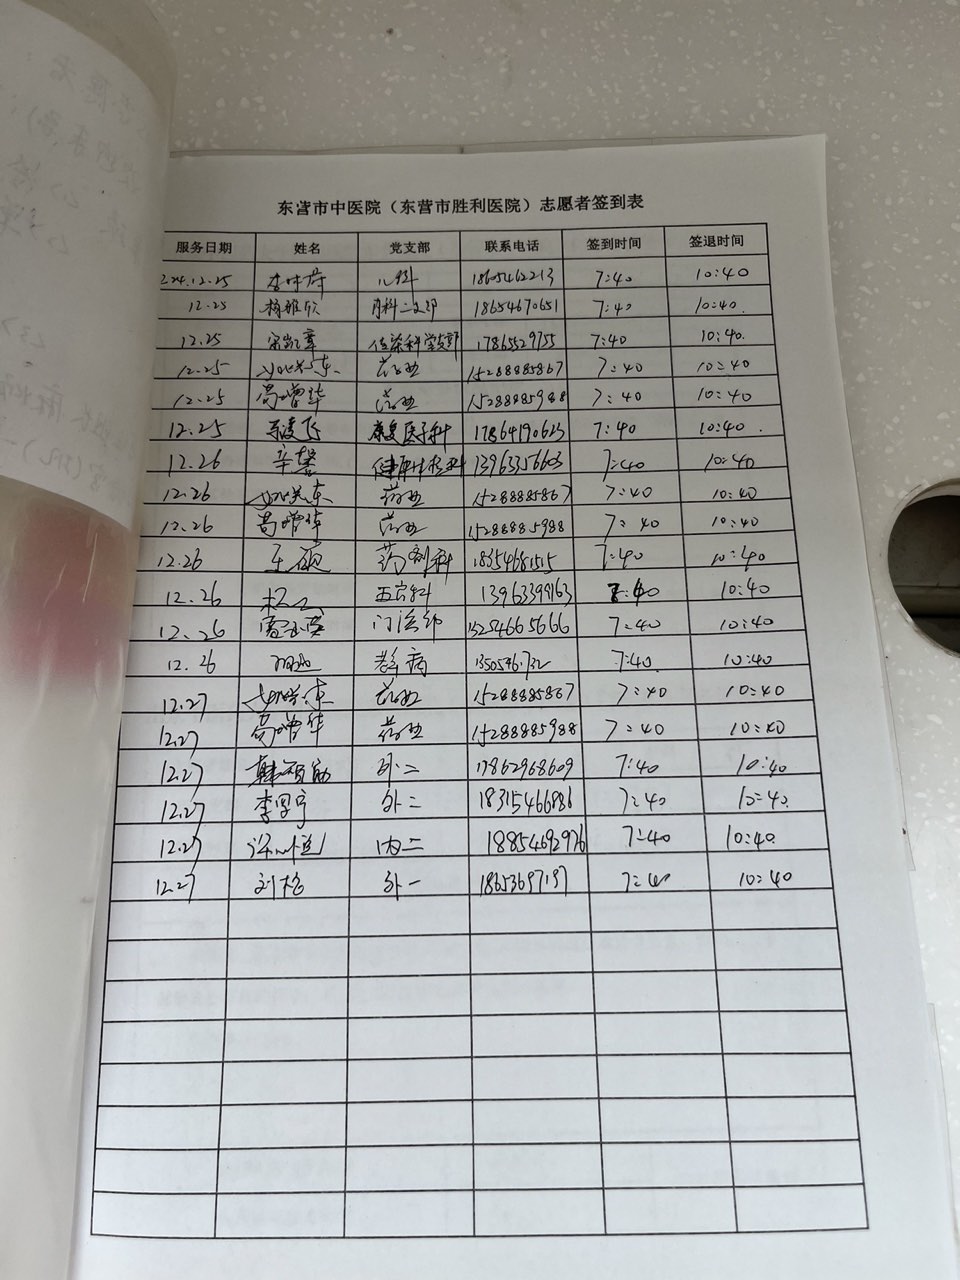 东营市中医院（东营市胜利医院）志愿者签到表
服务日期 姓名 党支部 联系电话 签到时间 签退时间
24.12.25 儿科 18605462213 7:40 10:40
12.25 内科二支部 18654670651 7:40 10:40.
12.25 宋凯章 传染科党支部 17865529755 7:40 10:40.
12.25 药西 15288885867 7:40 10:40
12.25 葛增华 药西 15288885988 7:40 10:40
12.25 康复医学科 17864190623 7:40 10:40.
12.26 辛馨 健康体检科 13963356603 7:40 10:40
12.26 药西 15288885867 7:40 10:40
12.26 葛增华 药西 15288885988 7:40 10:40
12.26 王硕 药剂科 18354681515 7:40 10:40
12.26 13963399163 7:40 10:40
12.26 门诊部 15254665666 7:40 10:40
12.26 老年病 7:40. 10:40
12.27 药西 15288885867 7:40 10:40
12.27 葛增华 药西 15288885988 7:40 10:40
12.27 外二 17862968609 7:40 10:40
12.27 李学宁 外二 18315466886 7:40 10:40.
12.27 内二 18854692976 7:40 10:40.
12.27 外一 18653697197 7:40 10:40